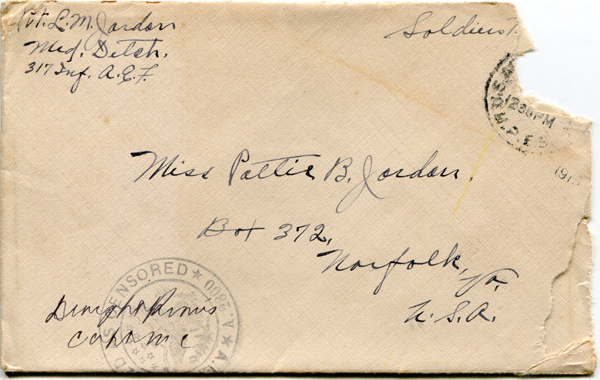 Pvt. L. M. Jordan
Med. Detch.
317 Inf. A.E.F.
Soldiers
1230 PM
Miss Pattie B. Jordan.
Box 372,
Norfolk,
Va.
U.S.A.
CENSORED
A.3800
Capt M C